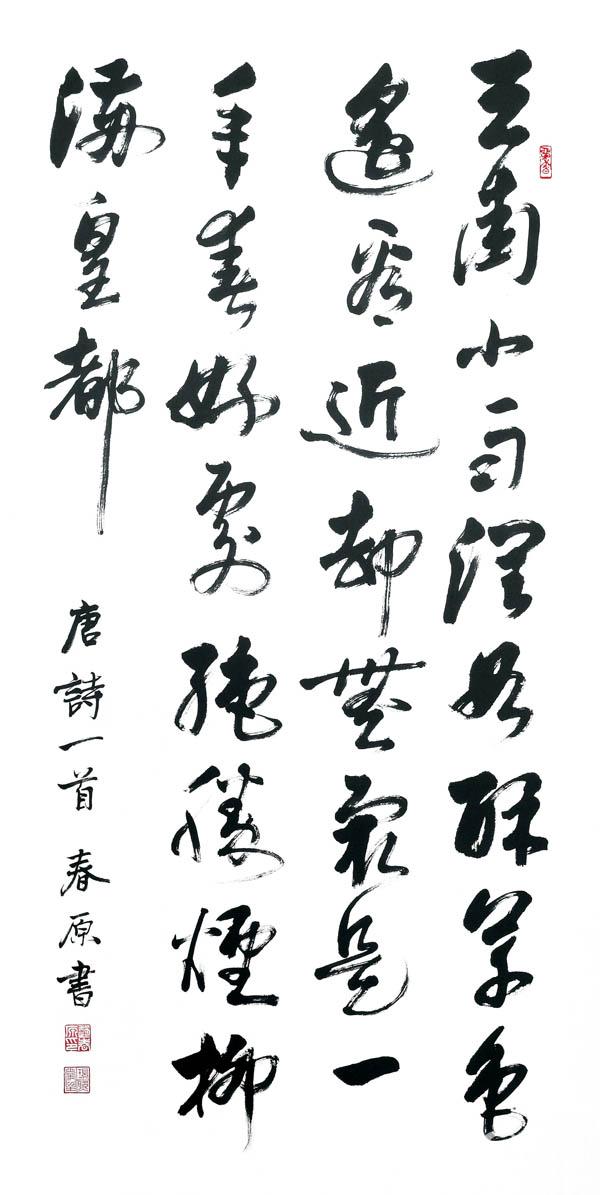 天街小雨潤如酥草色
遙看近却無最是一
年春好處絕勝煙柳
滿皇都
唐詩一首 春原書